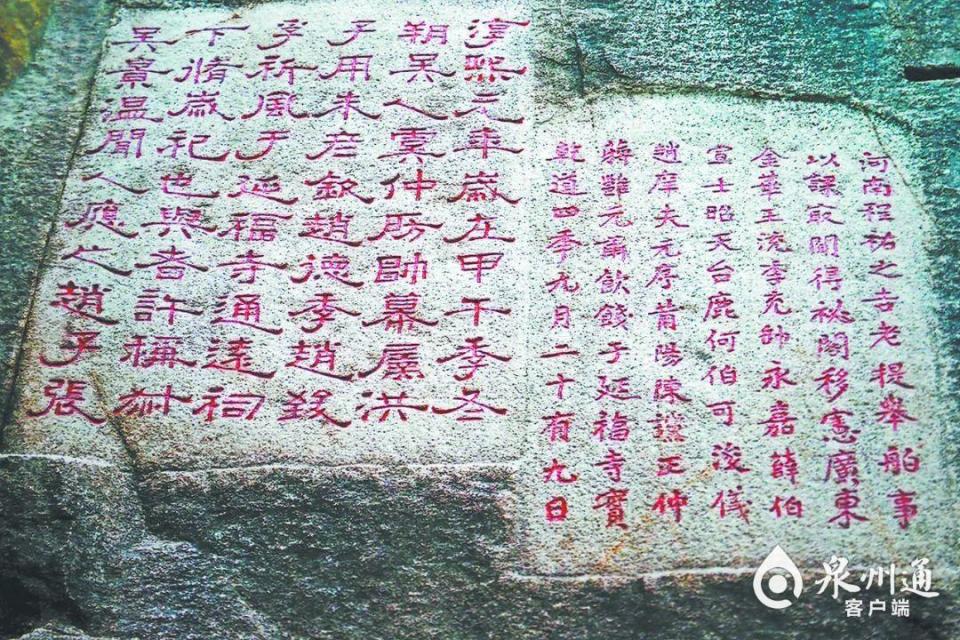 河南程祐之吉老提舉舶事
以課最聞得祕閣移憲廣東
金華王流季充帥永嘉薛伯
宣士昭天台鹿何伯可浚儀
趙庠夫元序莆陽陳讜正仲
蔣雝元肅飲餞于延福寺實
乾道四秊九月二十有九日
淳熙元年歲在甲午季冬
朔吳人虞仲房帥幕屬洪
子用朱彦欽趙德季趙致
孚祈風于延福寺通遠祠
下脩歲祀也與者許稱叔
吳景溫聞人應之趙子張
泉州通
客户端